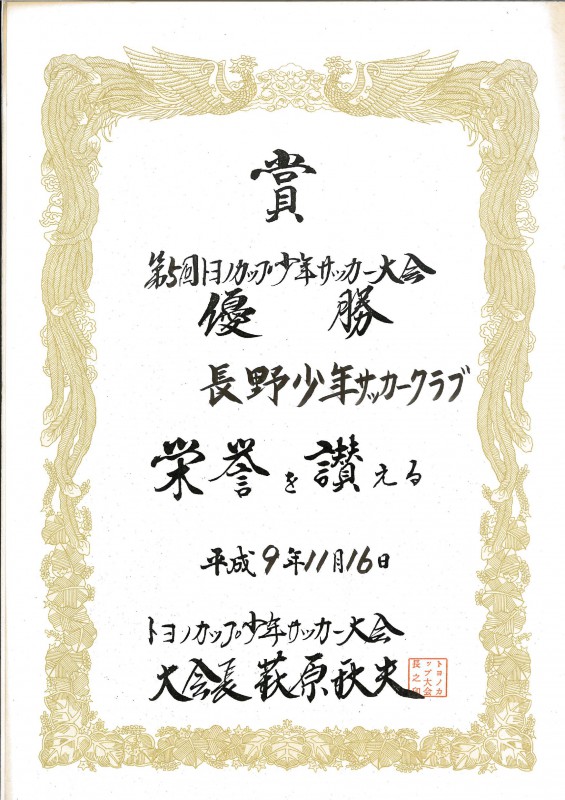 賞
第5回トヨノカップ少年サッカー大会
優勝
長野少年サッカークラブ
栄誉を讃える
平成9年11月16日
トヨノカップ少年サッカー大会
大会長 萩原秋夫
トヨノカ
ップ大会
長之印